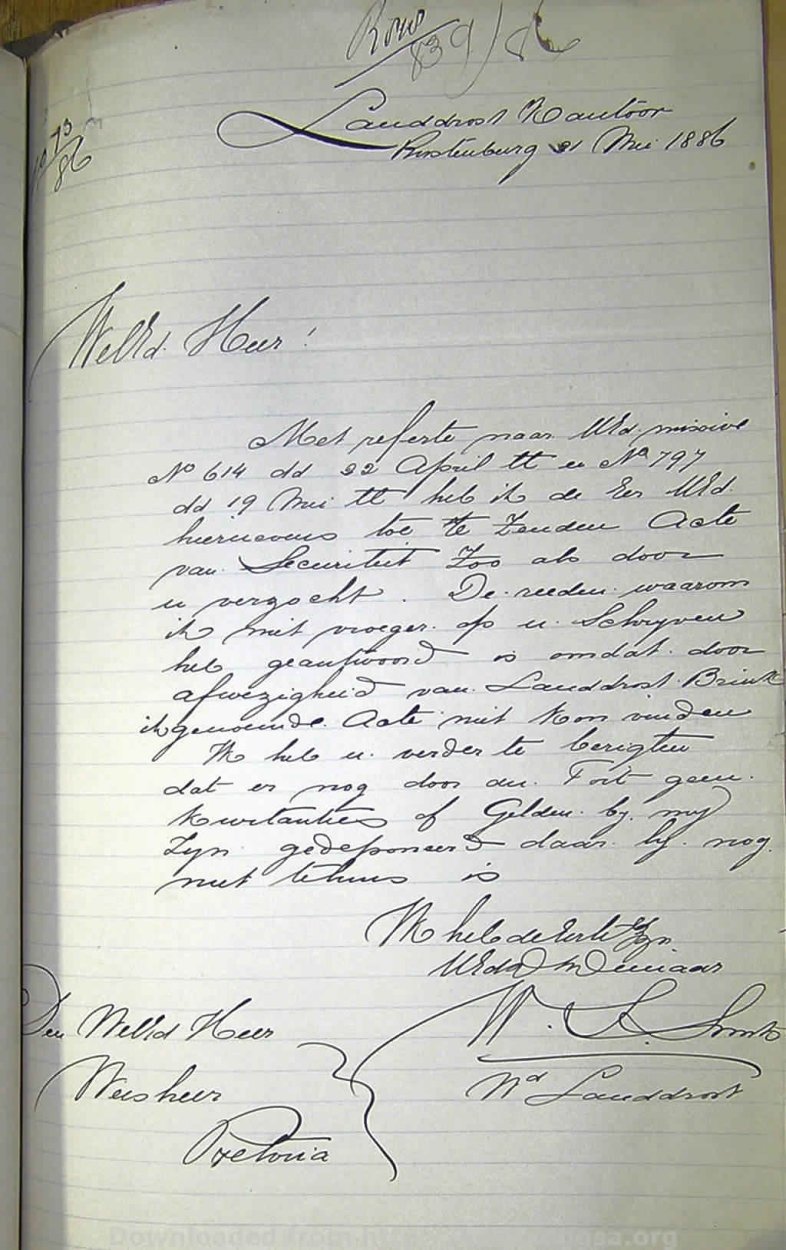 839/86
1073/86
Landdrost Kantoor
Rustenburg 21 Mei 1886
WelEd. Heer!
Met referte naar UEd. missive
No 614 dd 22 April ll en No 797
dd 19 Mei ll heb ik de Eer UEd.
hiernevens toe te Zenden Acte
van Securiteit Zoo als door
u verzocht. De reeden waarom
ik niet vroeger op u Schryven
heb geantwoord is omdat door
afwezigheid van Landdrost Brink
ik genoemde Acte niet kon vinden
Ik heb u verder te berigten
dat er nog door den Fort geen
Kwitanties of Gelden by my
Zyn gedeponeerd daar hy nog
niet tehuis is
Ik heb de Eer te Zyn
UEd Dw Dienaar
W. Smuts
Wd Landdrost
Den WelEd Heer
Weesheer
Pretoria
Downloaded from http://
.org